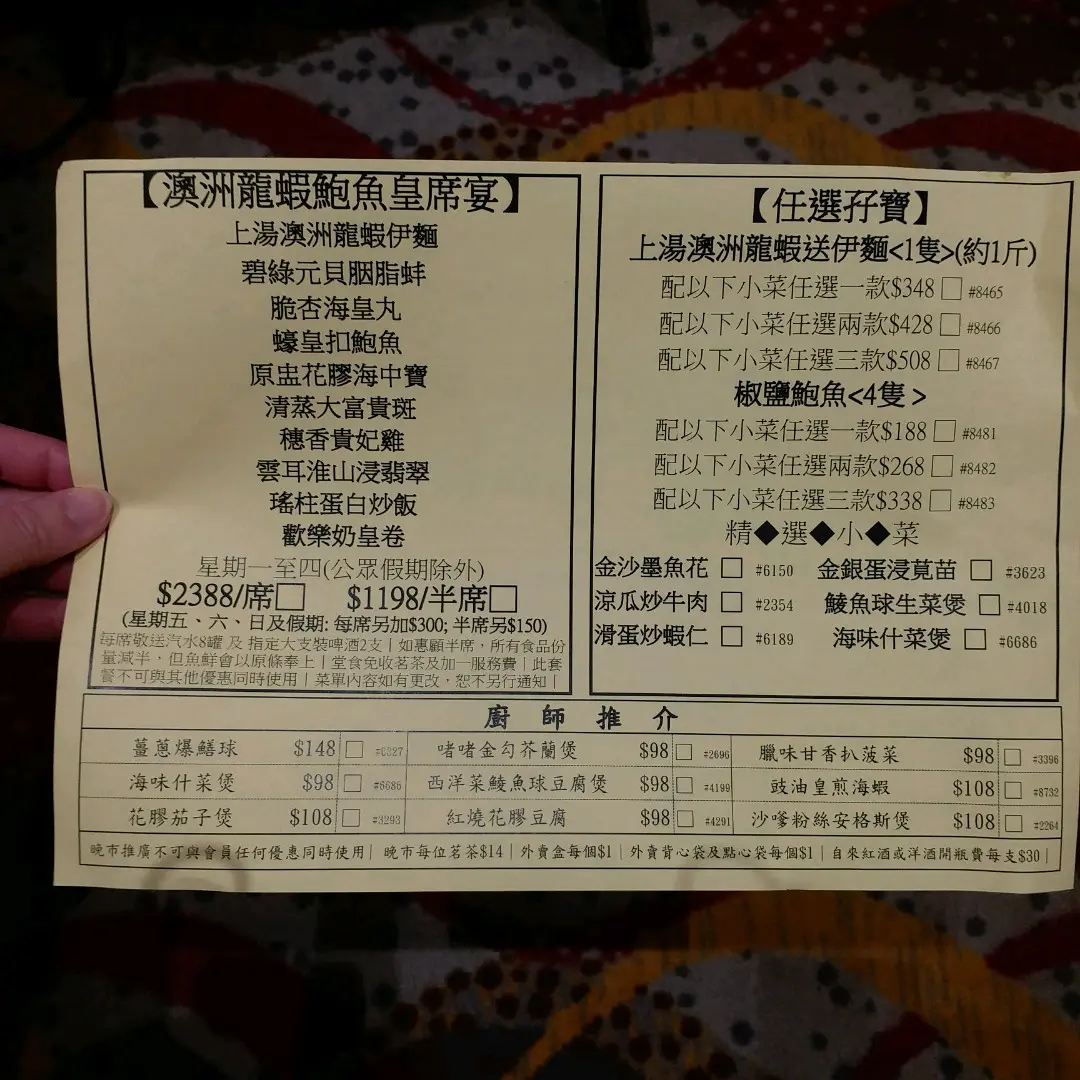 【澳洲龍蝦鮑魚皇席宴】
上湯澳洲龍蝦伊麵
碧綠元貝胭脂蚌
脆杏海皇丸
蠔皇扣鮑魚
原盅花膠海中寶
清蒸大富貴斑
穗香貴妃雞
雲耳淮山浸翡翠
瑤柱蛋白炒飯
歡樂奶皇卷
星期一至四(公眾假期除外)
$2388/席□ $1198/半席□
(星期五、六、日及假期: 每席另加$300; 半席另$150)
每席敬送汽水8罐 及 指定大支裝啤酒2支｜如惠顧半席，所有食品份
量減半，但魚鮮會以原條奉上｜堂食免收茗茶及加一服務費｜此套
餐不可與其他優惠同時使用｜菜單內容如有更改，恕不另行通知｜
【任選孖寶】
上湯澳洲龍蝦送伊麵<1隻>(約1斤)
配以下小菜任選一款$348 □ #8465
配以下小菜任選兩款$428 □ #8466
配以下小菜任選三款$508 □ #8467
椒鹽鮑魚<4隻>
配以下小菜任選一款$188 □ #8481
配以下小菜任選兩款$268 □ #8482
配以下小菜任選三款$338 □ #8483
精◆選◆小◆菜
金沙墨魚花 □ #6150 金銀蛋浸莧苗 □ #3623
涼瓜炒牛肉 □ #2354 鯪魚球生菜煲 □ #4018
滑蛋炒蝦仁 □ #6189 海味什菜煲 □ #6686
廚師推介
薑蔥爆鱔球 $148 □ #6327 啫啫金勾芥蘭煲 $98 □ #2696 臘味甘香扒菠菜 $98 □ #3396
海味什菜煲 $98 □ #6686 西洋菜鯪魚球豆腐煲 $98 □ #4199 豉油皇煎海蝦 $108 □ #8732
花膠茄子煲 $108 □ #3293 紅燒花膠豆腐 $98 □ #4291 沙嗲粉絲安格斯煲 $108 □ #2264
晚市推廣不可與會員任何優惠同時使用｜ 晚市每位茗茶$14｜外賣盒每個$1｜外賣背心袋及點心袋每個$1｜自來紅酒或洋酒開瓶費每支$30｜